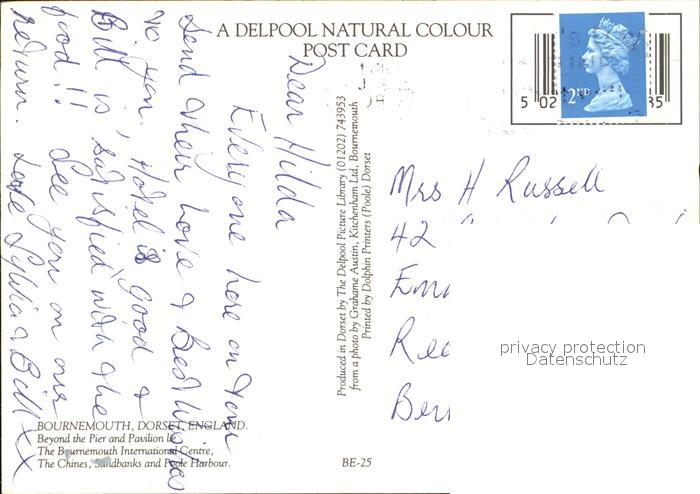 A DELPOOL NATURAL COLOUR
POST CARD
5 02
35
2ND
Dear Hilda
Everyone here on tour
send their love & best wishes
to you. Hotel is good &
Bill is satisfied with the
food!! See you on our
return. Love Sylvia & Bill xx
Produced in Dorset by The Delpool Picture Library (01202) 743953
from a photo by Grahame Austin, Kitchenham Ltd., Bournemouth
Printed by Dolphin Printers (Poole) Dorset
Mrs H Russell
42
privacy protection
Datenschutz
BOURNEMOUTH, DORSET, ENGLAND.
Beyond the Pier and Pavilion
The Bournemouth International Centre,
The Chines, Sandbanks and Poole Harbour.
BE-25